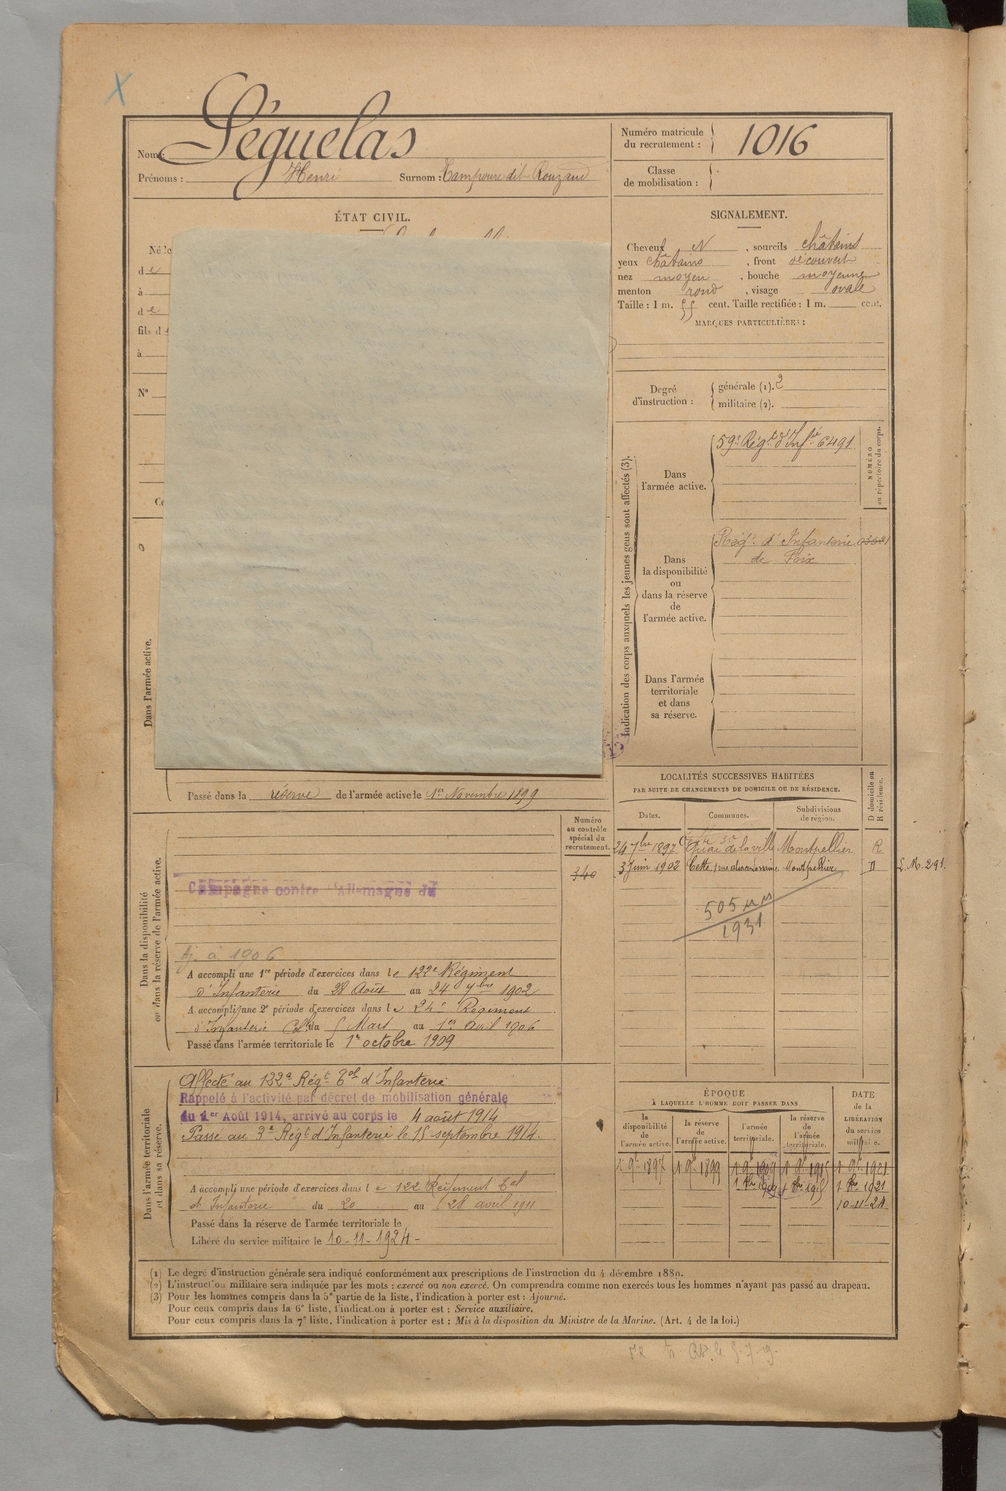 Nom : Séguelas
Prénoms : Henri Surnom : Tampoure dit Rouzaud
Numéro matricule
du recrutement : 1016
Classe
de mobilisation :
ÉTAT CIVIL.
Né le
de
à
de
fils d
à
N°
Ce
Dans l'armée active.
Passé dans la réserve de l'armée active le 1er Novembre 1899
SIGNALEMENT.
Cheveux N , sourcils châtains
yeux châtains , front découvert
nez moyen , bouche moyenne
menton rond , visage ovale
Taille : 1 m. 55 cent. Taille rectifiée : 1 m. cent.
MARQUES PARTICULIÈRES :
Degré
d'instruction :
générale (1). 2
militaire (2).
Indication des corps auxquels les jeunes gens sont affectés (3).
NUMÉRO
au répertoire du corps.
Dans
l'armée active.
59e Régt d'Infie 6491
Dans
la disponibilité
ou
dans la réserve
de
l'armée active.
Régt d'Infanterie
de Foix
Dans l'armée
territoriale
et dans
sa réserve.
LOCALITÉS SUCCESSIVES HABITÉES
PAR SUITE DE CHANGEMENTS DE DOMICILE OU DE RÉSIDENCE.
D domicile ou
R résidence.
Dates. Communes. Subdivisions
de région.
24 7bre 1897 Quai de la ville Montpellier R
3 Juin 1902 Cette, rue Montpellier D L.M. 291
505
1931
Dans la disponibilité
ou dans la réserve de l'armée active.
Numéro
au contrôle
spécial du
recrutement.
340
Campagne contre l'Allemagne du
Aj. à 1906
A accompli une 1re période d'exercices dans le 122e Régiment
d'Infanterie du 28 Août au 24 7bre 1902
A accompli une 2e période d'exercices dans le 24e Régiment
d'Infanterie Col. du 5 Mars au 1er Avril 1906
Passé dans l'armée territoriale le 1er octobre 1909
Dans l'armée territoriale
et dans sa réserve.
Affecté au 132e Régt Tal d'Infanterie
Rappelé à l'activité par décret de mobilisation générale
du 1er Août 1914, arrivé au corps le 4 août 1914
Passé au 3e Régt d'Infanterie le 15 septembre 1914.
A accompli une période d'exercices dans le 122 Régiment Tal
d'Infanterie du 20 au 28 avril 1911
Passé dans la réserve de l'armée territoriale le
Libéré du service militaire le 10-11-1924-
ÉPOQUE
À LAQUELLE L'HOMME DOIT PASSER DANS
DATE
de la
LIBÉRATION
du service
militaire.
la
disponibilité
de
l'armée active.
la réserve
de
l'armée active.
l'armée
territoriale.
la réserve
de
l'armée
territoriale.
1 9e 1897 1 9e 1899 1 9e 1909 1 9e 1915 1 9e 1921
1 8bre 1909 1 8bre 1915 1 8bre 1921
10-11-24
(1) Le degré d'instruction générale sera indiqué conformément aux prescriptions de l'instruction du 4 décembre 1889.
(2) L'instruction militaire sera indiquée par les mots : exercé ou non exercé. On comprendra comme non exercés tous les hommes n'ayant pas passé au drapeau.
(3) Pour les hommes compris dans la 5e partie de la liste, l'indication à porter est : Ajourné.
Pour ceux compris dans la 6e liste, l'indication à porter est : Service auxiliaire.
Pour ceux compris dans la 7e liste, l'indication à porter est : Mis à la disposition du Ministre de la Marine. (Art. 4 de la loi.)